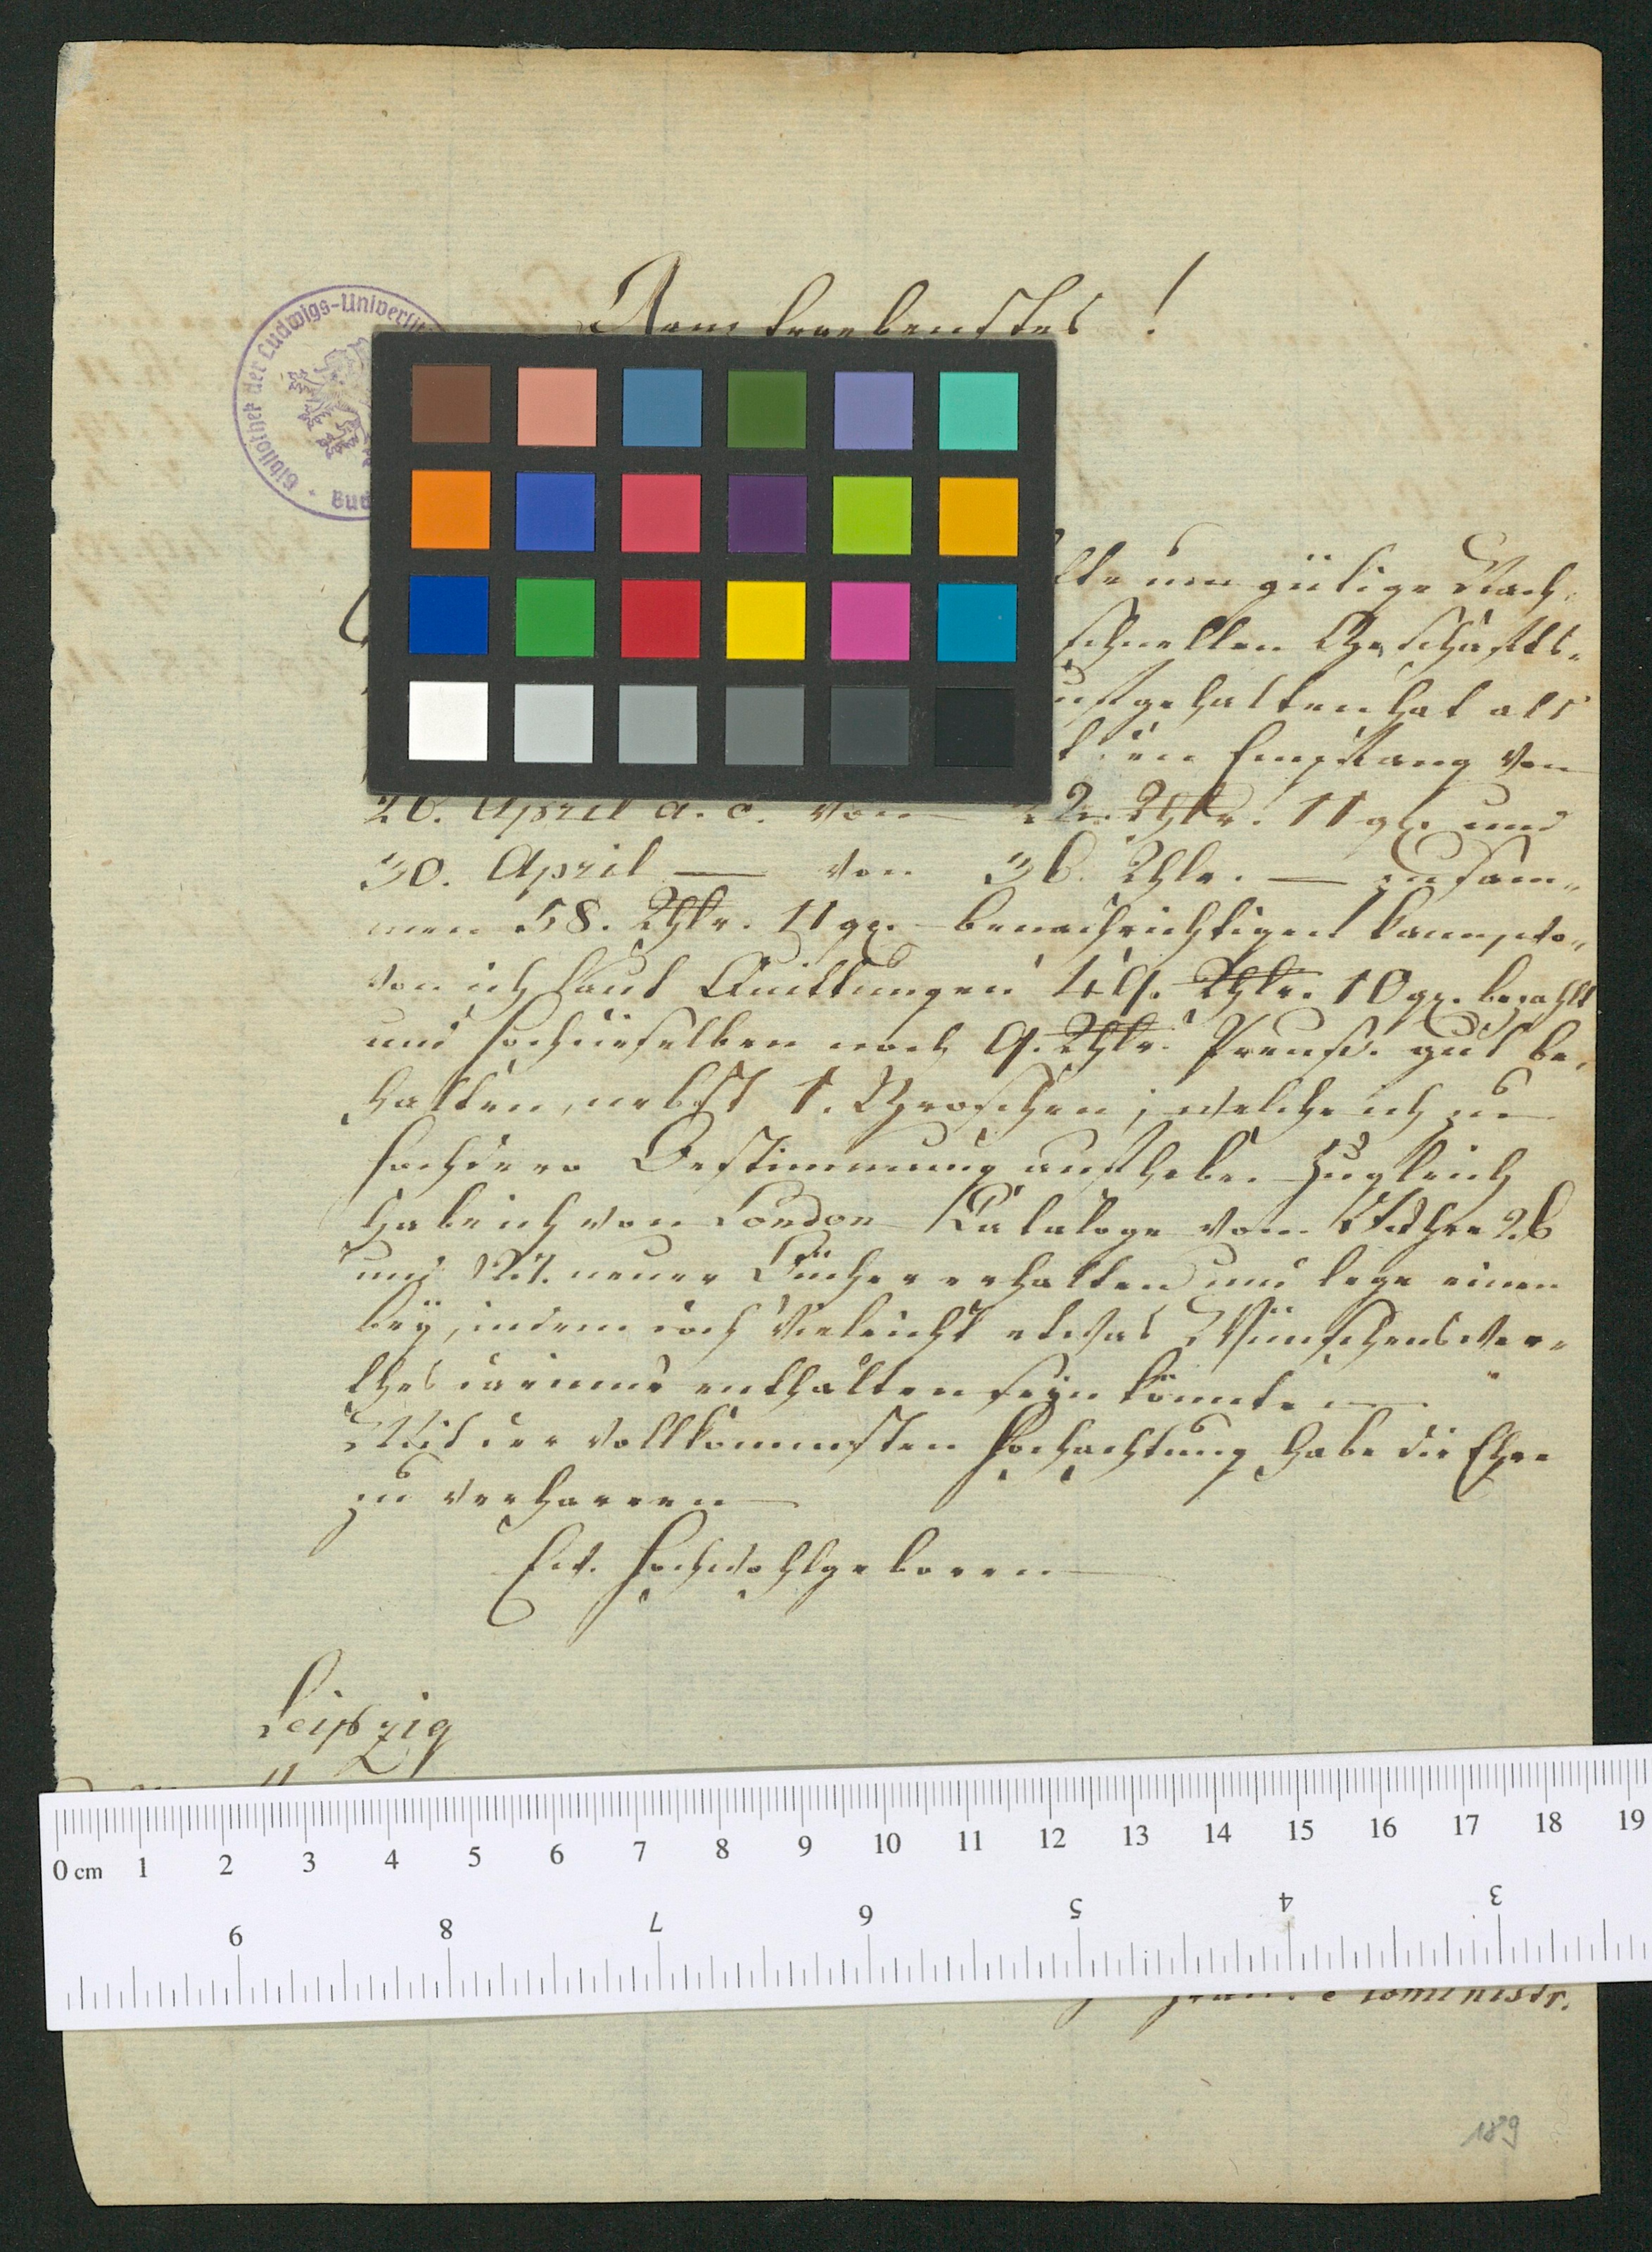 Bibliothek der Ludwigs-Universit
ergebenstes !
um gütige Nach-
schnellen Geschäfts-
aufgehalten hat als
Empfang von
26. April a. c. von 22. Thlr. 11 gr. und
30. April — von 36. Thlr. — zusam-
men 58. Thlr. 11 gr. benachrichtigen kann, wo-
von ich laut Quittungen 49. Thlr. 10 gr. bezahlt
und hochdieselben noch 9. Thlr. Preuß. gut be-
halten, nebst 1. Groschen, welche ich zu
hochdero Bestimmung aufhebe. Zugleich
habe ich von London Cataloge vom Jahre 26
und 27. neuer Bücher erhalten und lege einen
bey, indem doch vieleicht etwas Wünschenswer-
thes darinne enthalten seyn könnte.
Mit der vollkommsten Hochachtung habe die Ehre
zu verharren
Ew. Hochwohlgeboren
Leipzig
0 cm 1 2 3 4 5 6 7 8 9 10 11 12 13 14 15 16 17 18 19
9 8 7 6 5 4 3
189